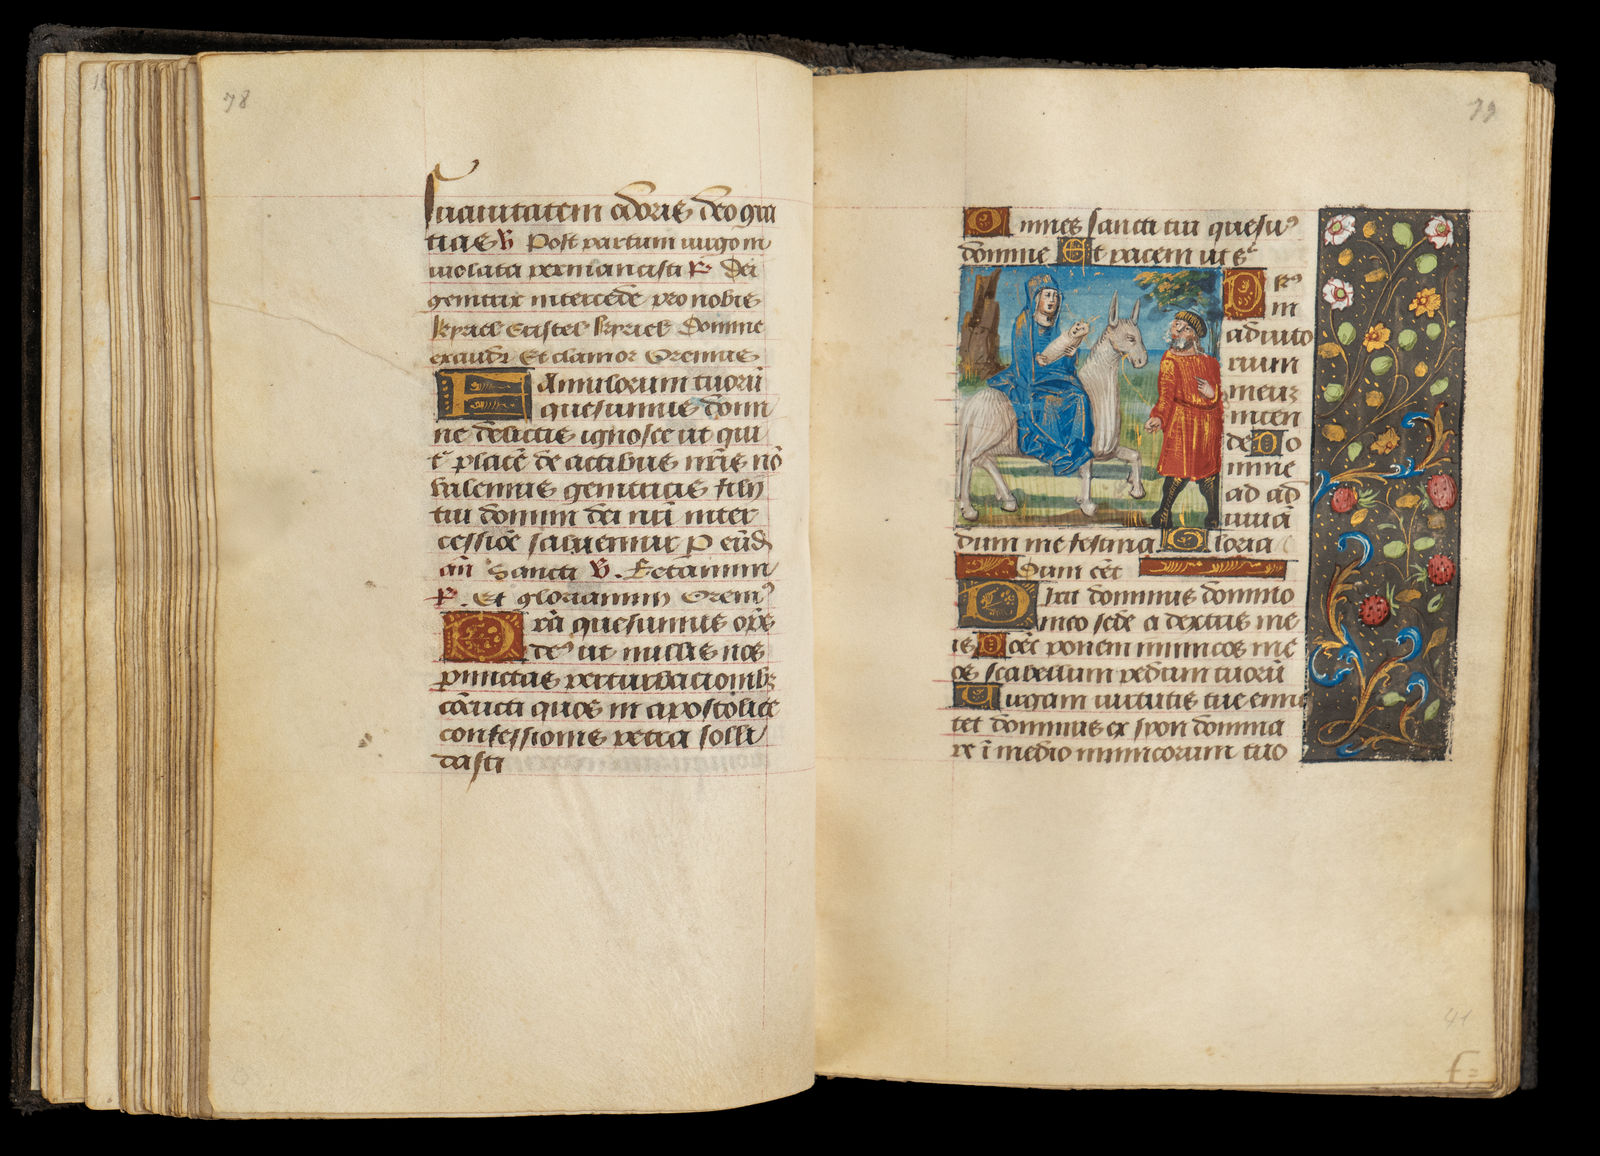 78
suavitatem odoris deo gra
tias ℣ Post partum virgo in
violata permansisti ℟ Dei
genitrix intercede pro nobis
kyriel Cristel kyriel Domine
exaudi Et clamor Oremus
Famulorum tuorū
quesumus domi
ne delictis ignosce ut qui
t placē de actibus nr̄is nō
valemus genitricis filij
tui domini dei nr̄i inter
cessiōe salvemur P eūd
añ Sancti ℣. Letamini
℟. Et gloriamini Orem⁹
Pr̄a quesumus op̄s
de⁹ ut nullis nos
permittas perturbacionibꝫ
cōcuti quos in apostolice
confessionis petra soli
dasti
79
Omnes sancti tui quesu⁹
domine Et pacem ut sͨ
De⁹
in
adiuto
rium
meuꝫ
inten
de Do
mine
ad ad
iuvā
dum me festina Gloria
Dum eēt
Dixit dominus domino
meo sede a dextris me
is Donec ponam inimicos tuos
scabellum pedum tuorū
Virgam virtutis tue emit
tet dominus ex syon domina
re ī medio inimicorum tuo
41